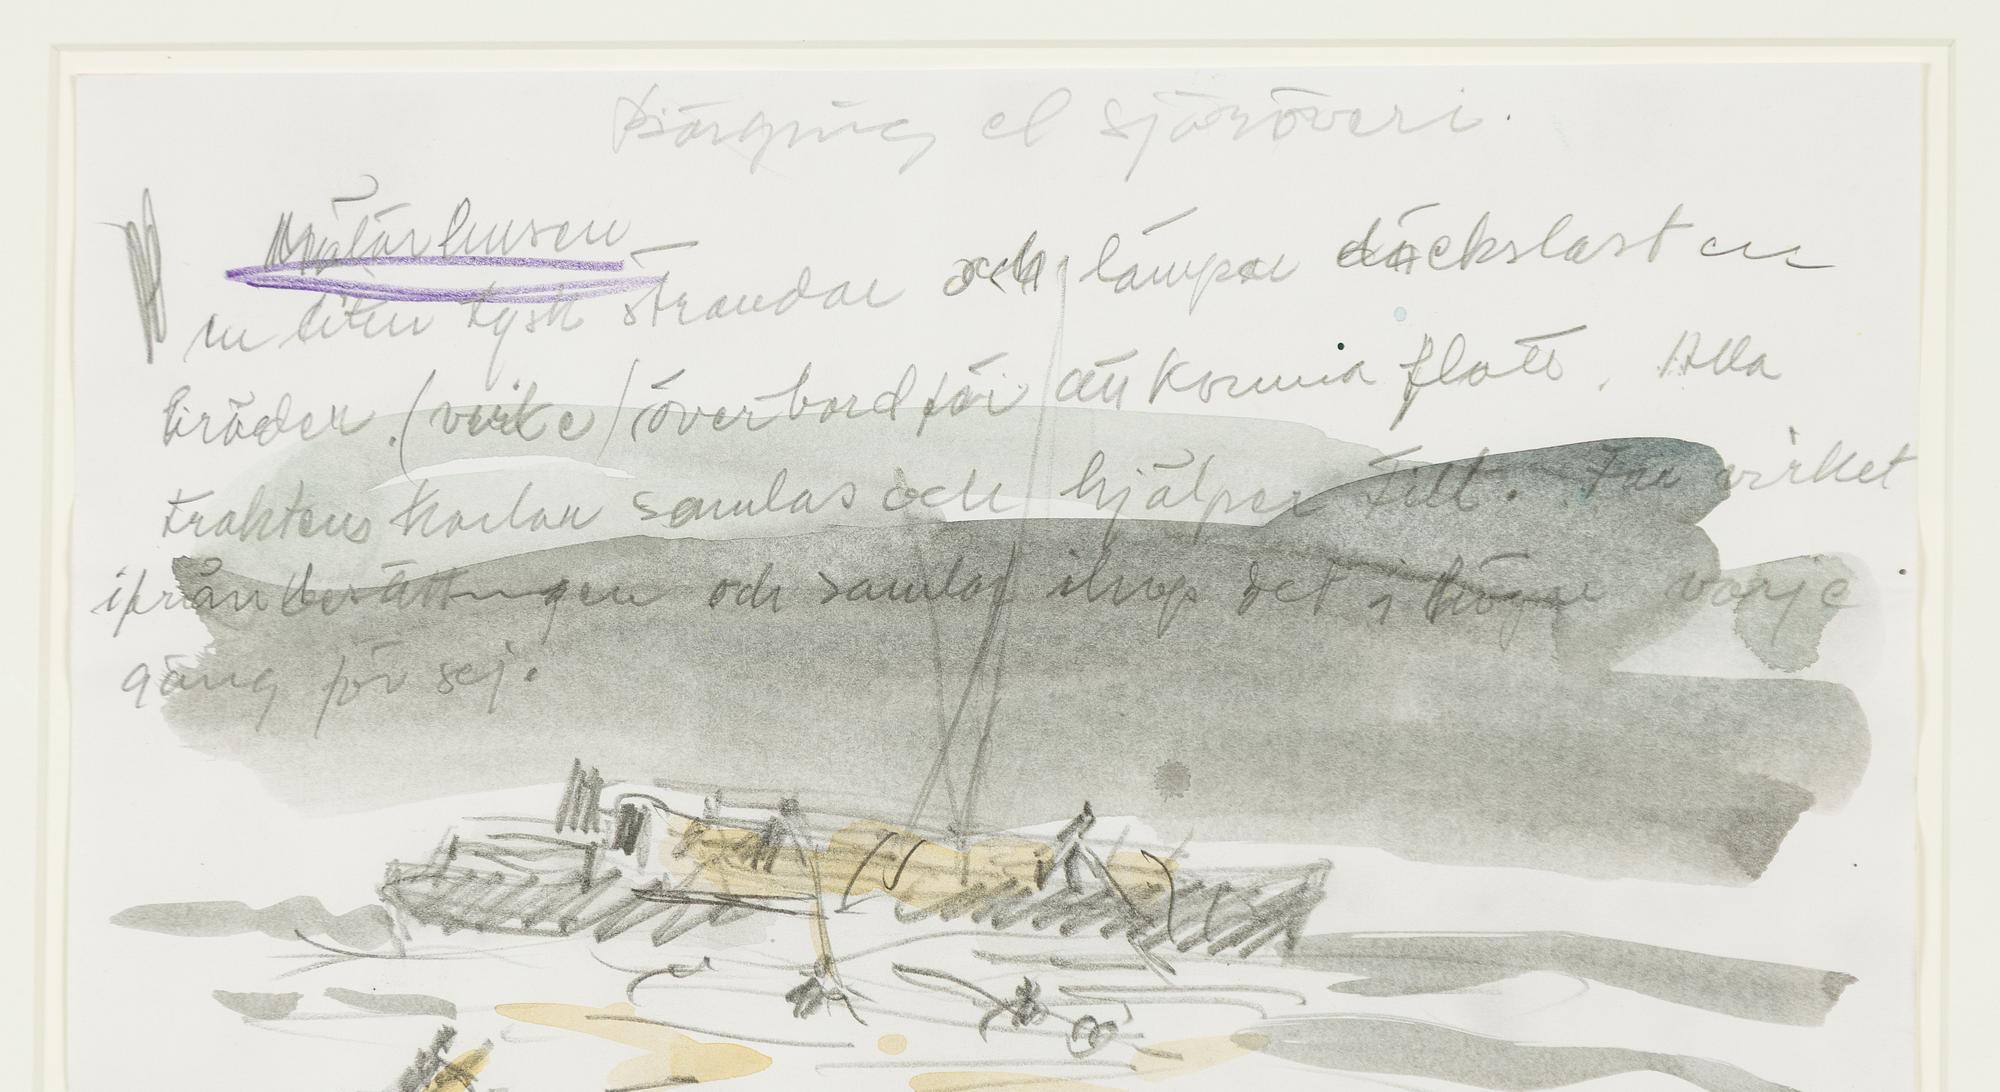 Bärgning el sjöröveri.
Mälarhusen
en liten tysk strandar och lämpar däckslast en
bräder. (virke) överbord för att komma flott. Alla
traktens karlar samlas och hjälper till. Tar virket
ifrån besättningen och samlar ihop det i högar varje
gäng för sej.